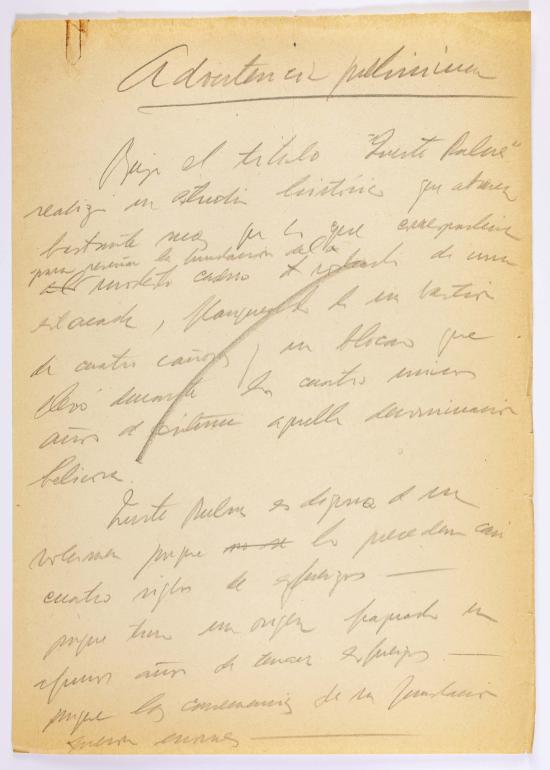 Advertencia preliminar
Bajo el título "Fuerte Bulnes"
realizo un estudio histórico que abarca
bastante mas que lo que correspondería
para reseñar la fundación del
modesto caserío rodeado de una
estacada, flanqueado de un bastión
de cuatro cañones y un blocao que
llevó durante los cuatro únicos
años de existencia aquella denominación
belicosa.
Fuerte Bulnes es digno de un
volumen porque lo preceden casi
cuatro siglos de esfuerzos —
porque tuvo un origen fraguado en
algunos años de tenaz esfuerzo —
porque las consecuencias de su fundación
fueron enormes —